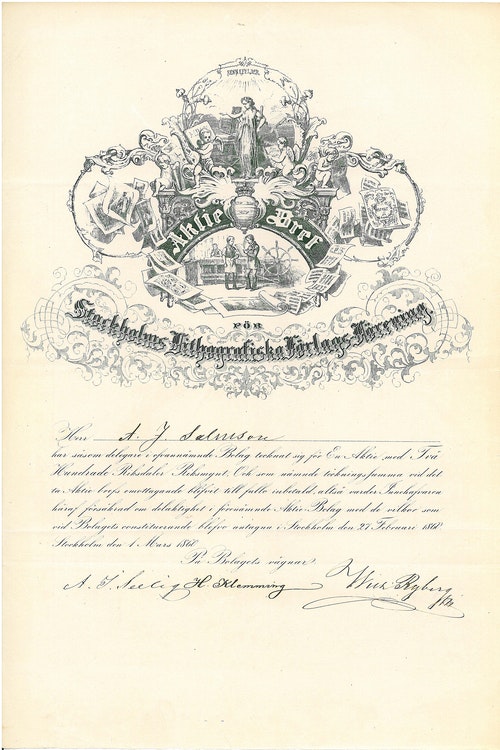 SENEFELDER
Aktie Bref
FÖR
Stockholms Lithografiska Förlags-Förening
Herr A. J. Salmson
har såsom delegare i ofvannämnde Bolag tecknat sig för En Aktie med Två
Hundrade Riksdaler Riksmynt, Och som nämnde teckningssumma vid det
ta Aktie brefs emottagande blifvit till fullo inbetald, alltså varder Innehafvaren
häraf försäkrad om delaktighet i förenämnde Aktie Bolag med de vilkor som
vid Bolagets constituerande blefvo antagna i Stockholm den 27 Februari 1868
Stockholm den 1 Mars 1868
På Bolagets vägnar:
A. J. Seelig H Klemming Ryberg